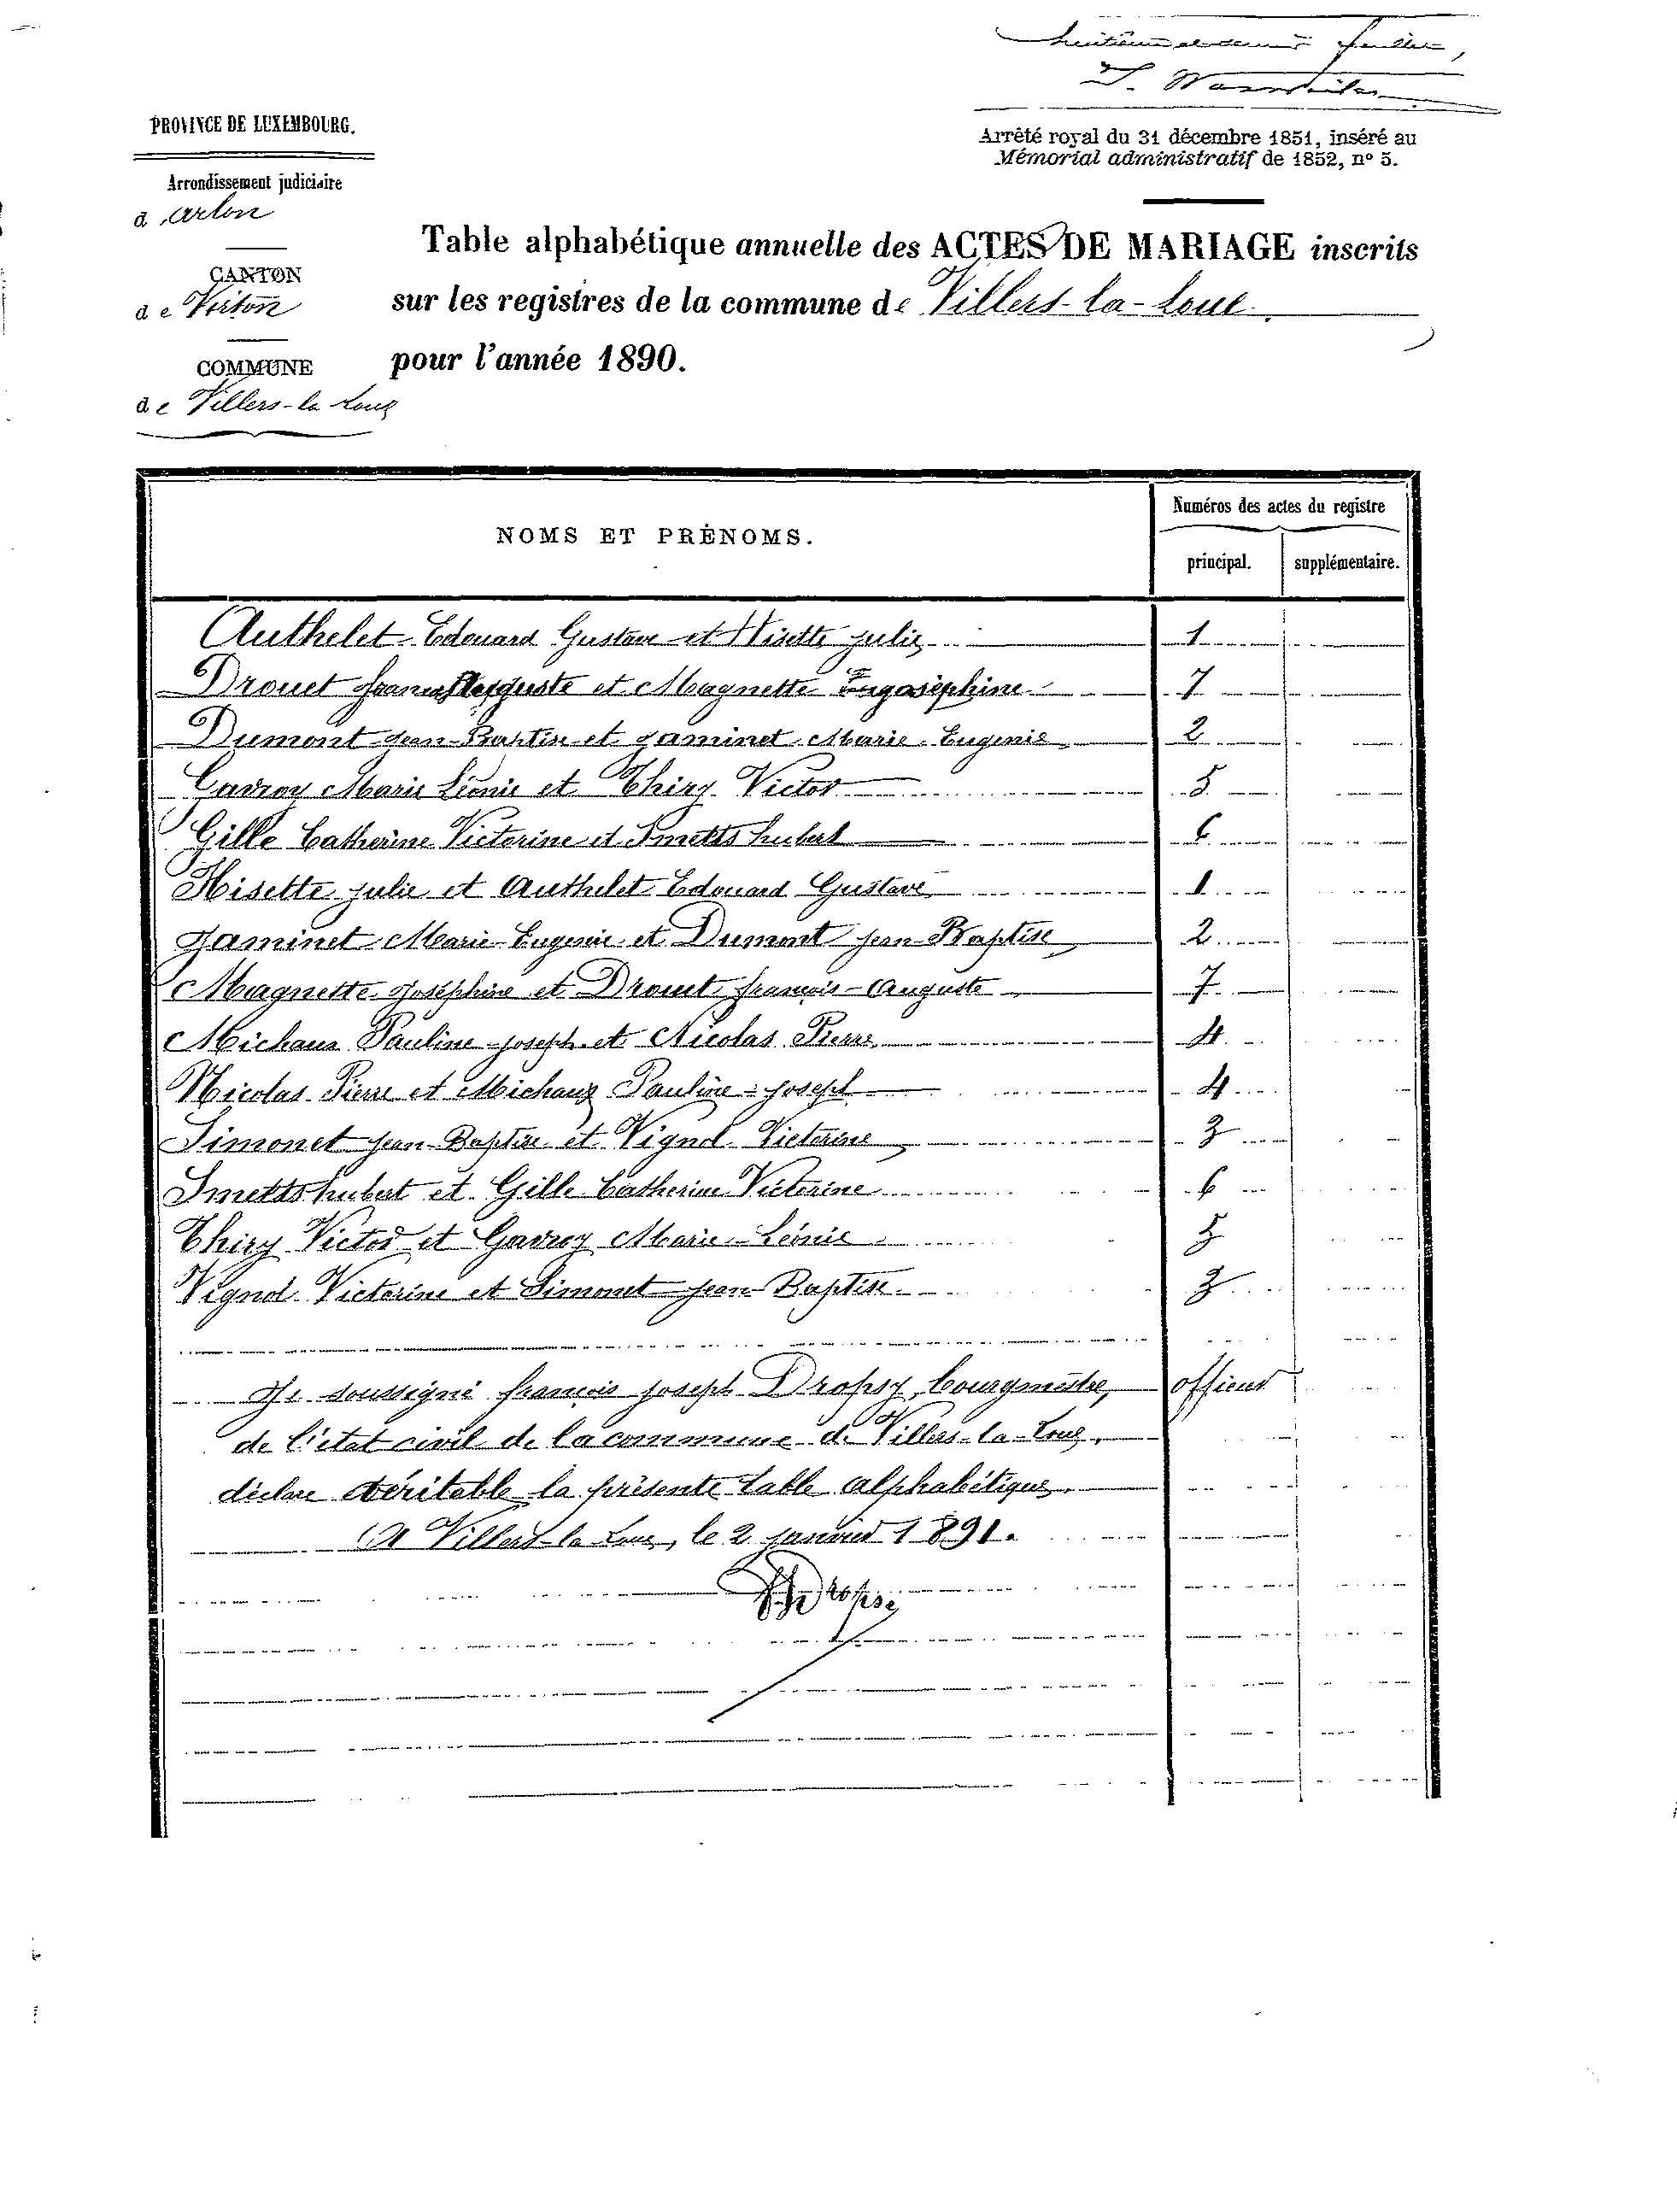 huitième et dernier feuillet,
PROVINCE DE LUXEMBOURG.
Arrêté royal du 31 décembre 1851, inséré au
Mémorial administratif de 1852, nº 5.
Arrondissement judiciaire
à Arlon
CANTON
de Virton
COMMUNE
de Villers-la-Loue
Table alphabétique annuelle des ACTES DE MARIAGE inscrits
sur les registres de la commune de Villers-la-Loue
pour l'année 1890.
NOMS ET PRÉNOMS.
Numéros des actes du registre
principal. supplémentaire.
Authelet Edouard Gustave et Hisette julie 1
Drouet françois Auguste et Magnette Josephine 7
Dumont Jean-Baptise et Jaminet Marie-Eugenie 2
Gavroy Marie Léonie et Thiry Victor 5
Gille Catherine Victorine et Smetts hubert 6
Hisette julie et Authelet Edouard Gustave 1
Jaminet Marie-Eugenie et Dumont jean-Baptise 2
Magnette Joséphine et Drouet françois-Auguste 7
Michaux Pauline-joseph et Nicolas Pierre 4
Nicolas Pierre et Michaux Pauline-joseph 4
Simonet jean-Baptise et Vignol Victorine 3
Smetts hubert et Gille Catherine Victorine 6
Thiry Victor et Gavroy Marie-Léonie 5
Vignol Victorine et Simonet jean-Baptise 3
Je soussigné françois joseph Dropsy, bourgmestre, officier
de l'état civil de la commune de Villers-la-Loue,
déclare véritable la présente table alphabétique.
A Villers-la-Loue, le 2 janvier 1891.
Dropsy